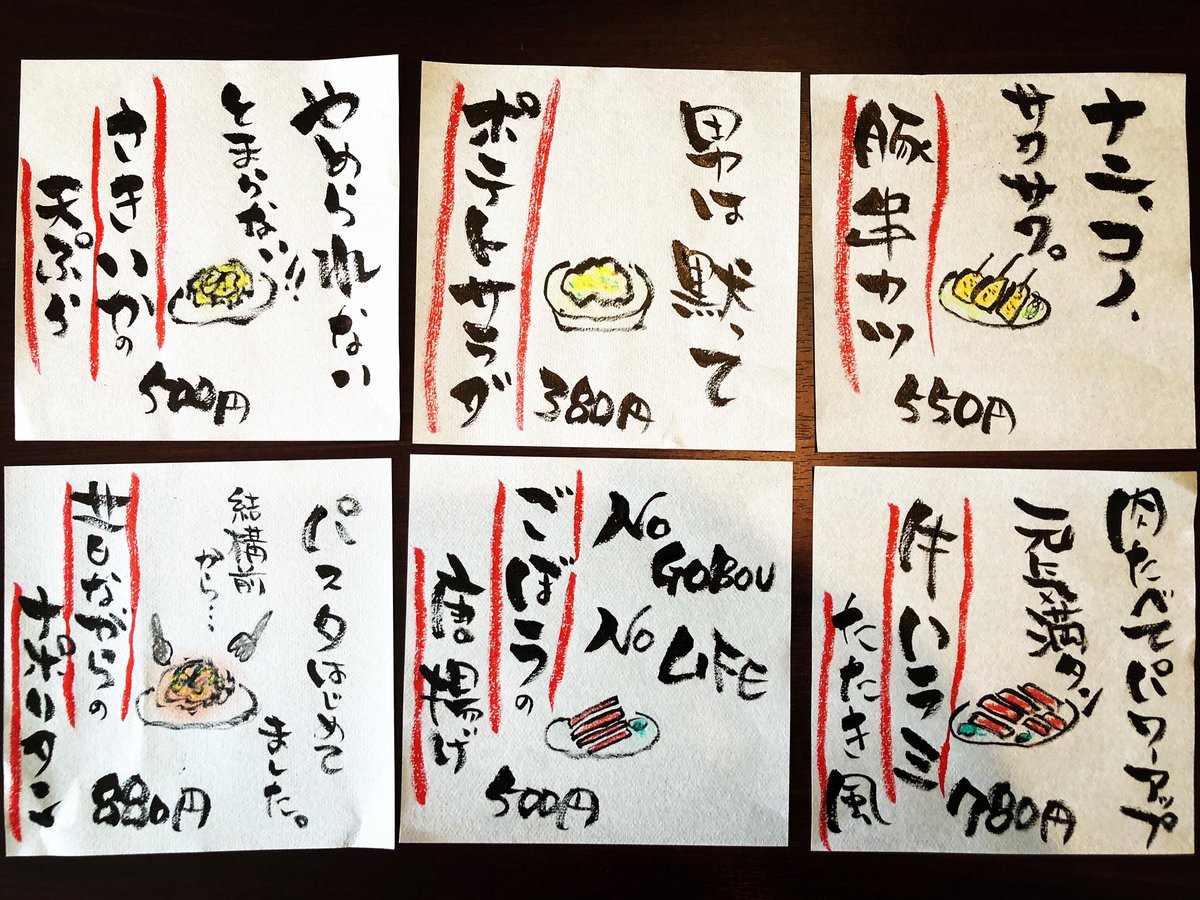 やめられない
とまらない!!
さきいかの
天ぷら
500円
男は黙って
ポテトサラダ
380円
ナニ、コノ、
サクサク。
豚串カツ
550円
パスタはじめて
ました。
結構前
から…
昔ながらの
ナポリタン
880円
No
GOBOU
No
LIFE
ごぼうの
唐揚げ
500円
肉たべてパワーアップ
元気満タン
牛ハラミ
たたき風
780円